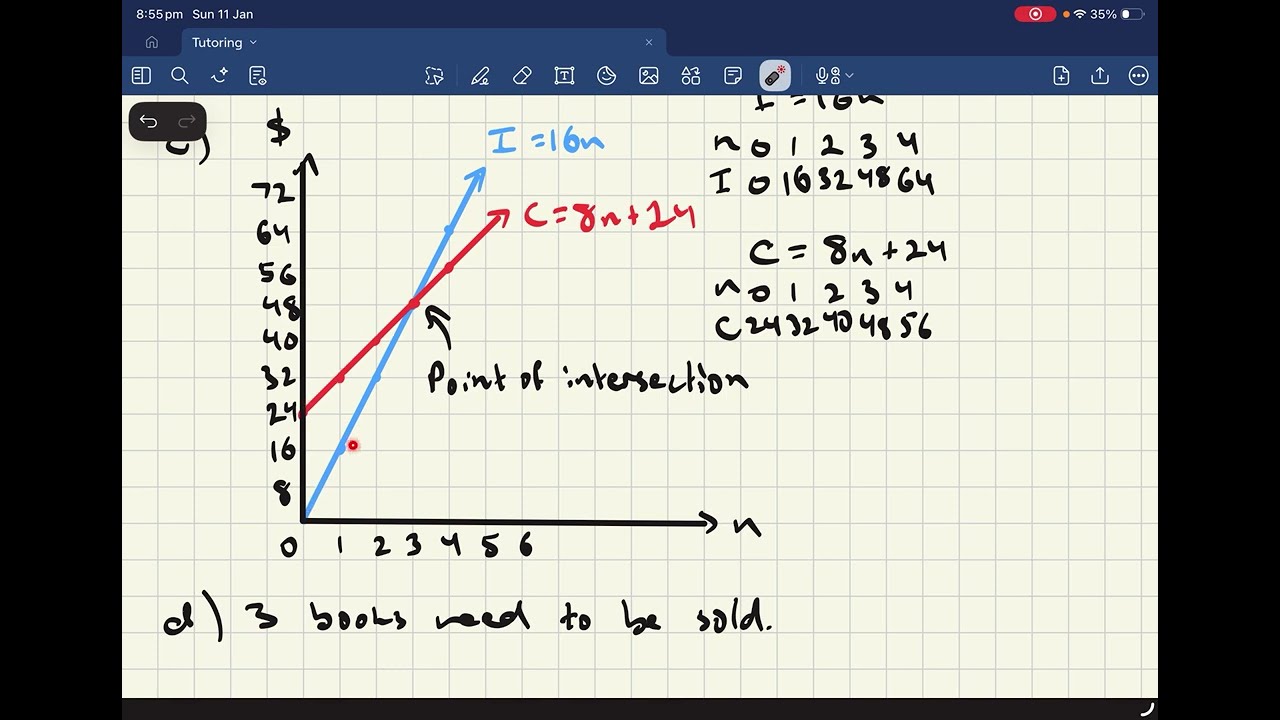 8:55 pm Sun 11 Jan
35%
Tutoring
c)
$
I = 16n
72
64
56
48
40
32
24
16
8
0 1 2 3 4 5 6
n
I = 16n
C = 8n + 24
Point of intersection
n 0 1 2 3 4
I 0 16 32 48 64
C = 8n + 24
n 0 1 2 3 4
C 24 32 40 48 56
d) 3 books need to be sold.